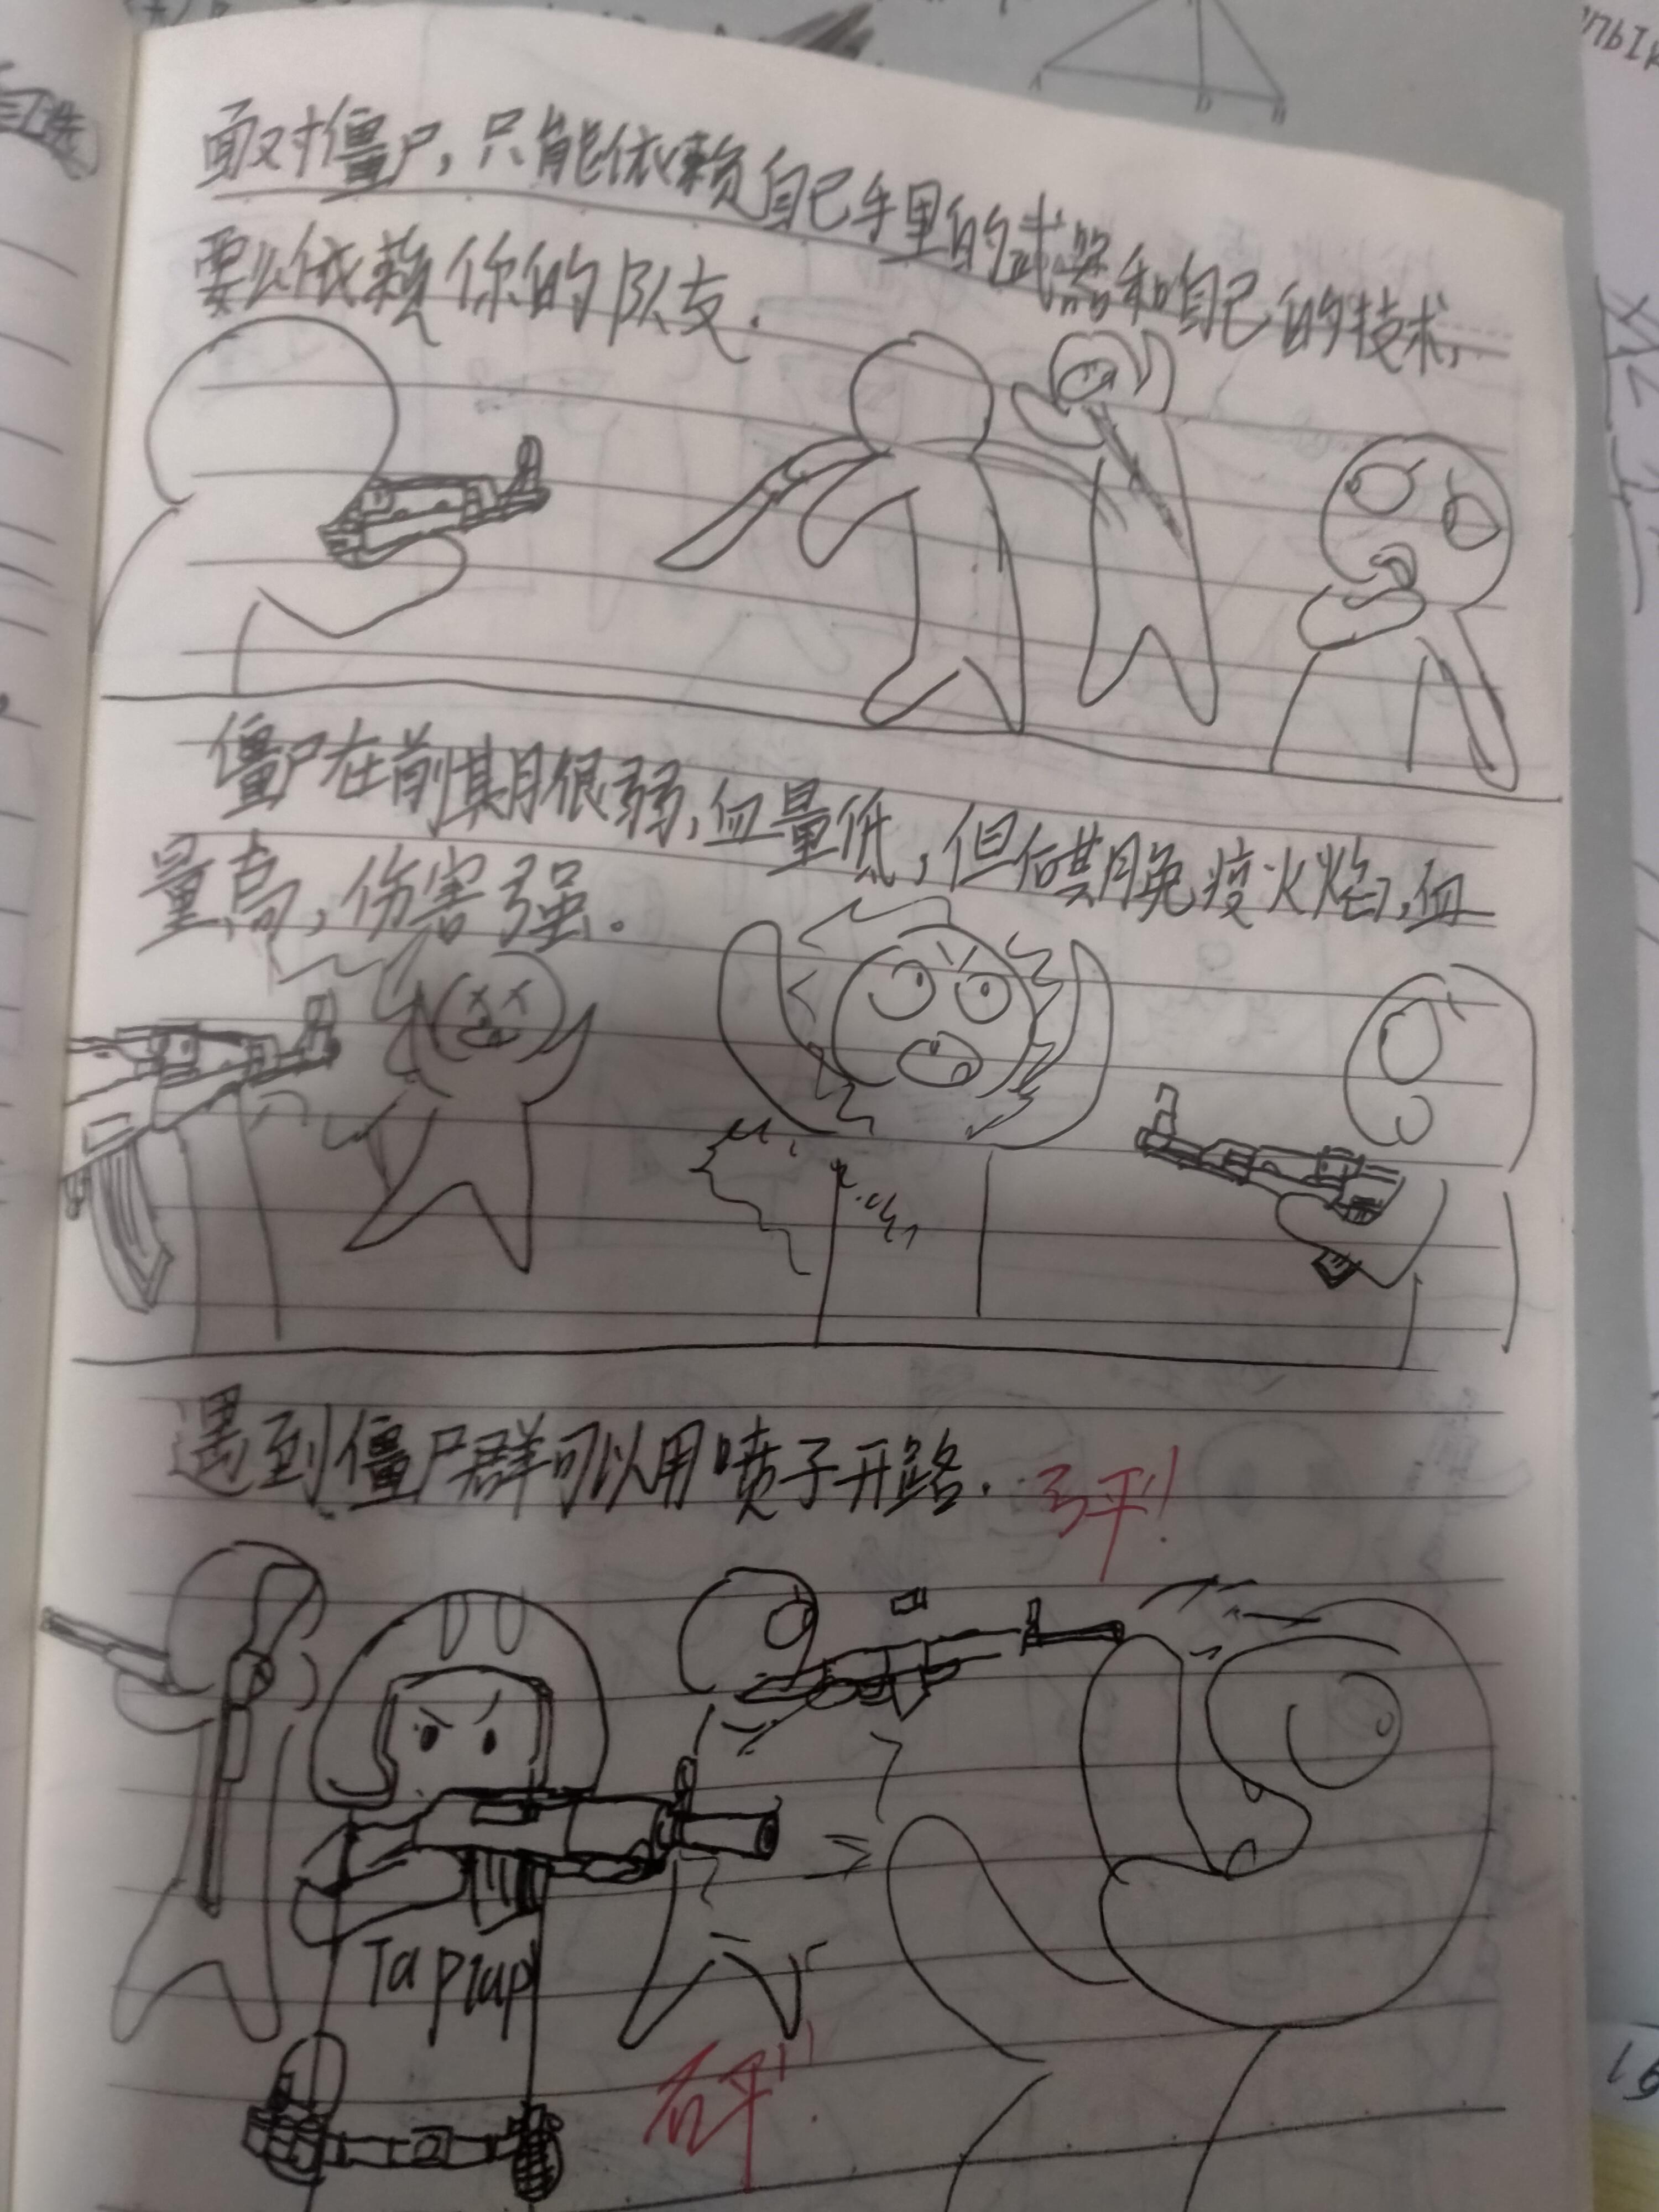 面对僵尸,只能依赖自己手里的武器和自己的技术,
要么依赖你的队友.
僵尸在前期很弱,血量低,但后期免疫火焰,血
量高,伤害强。
遇到僵尸群可以用喷子开路.
砰!